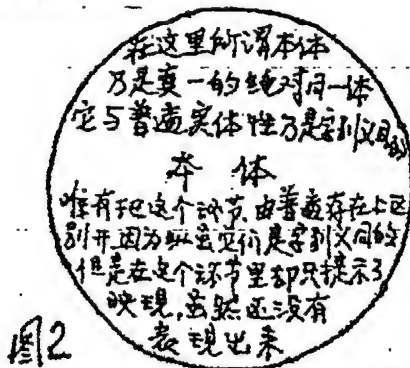 在这里所谓本体
乃是真一的绝对同一体
它与普遍实体性乃是字别义同的
本体
惟有把这个环节,由普遍存在上区
别开,因为纵虽它们是字别义同的
但是在这个环节里却只提示了
映现,虽然还没有
表现出来
图2